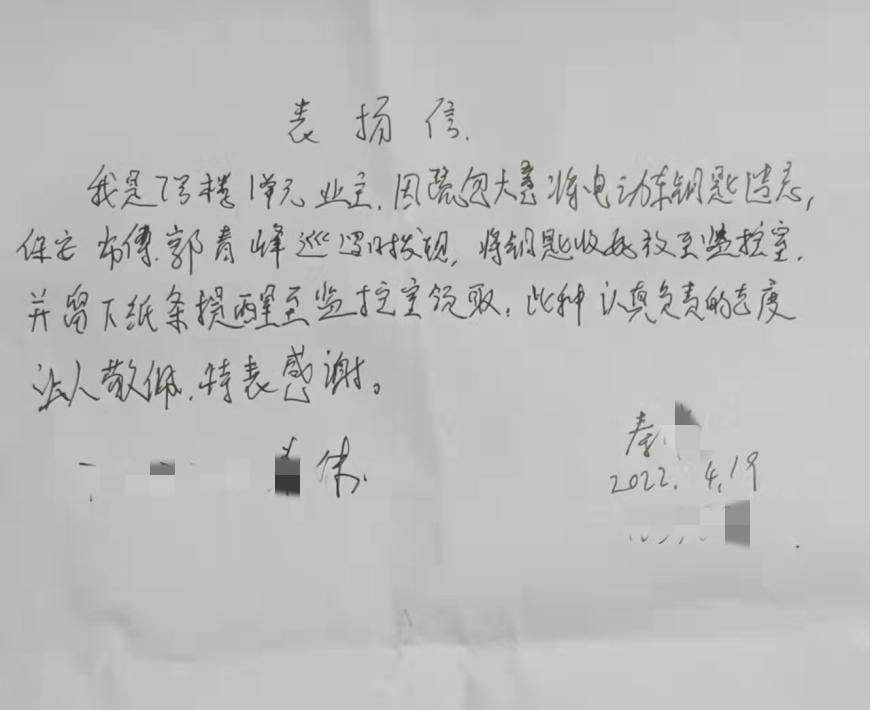 表扬信.
我是7号楼1单元业主.因疏忽大意将电动车钥匙遗忘,
保安布傅.郭青峰巡逻时发现,将钥匙收好放至监控室.
并留下纸条提醒至监控室领取,此种认真负责的态度
让人敬佩.特表感谢。
秦
2022.4.19